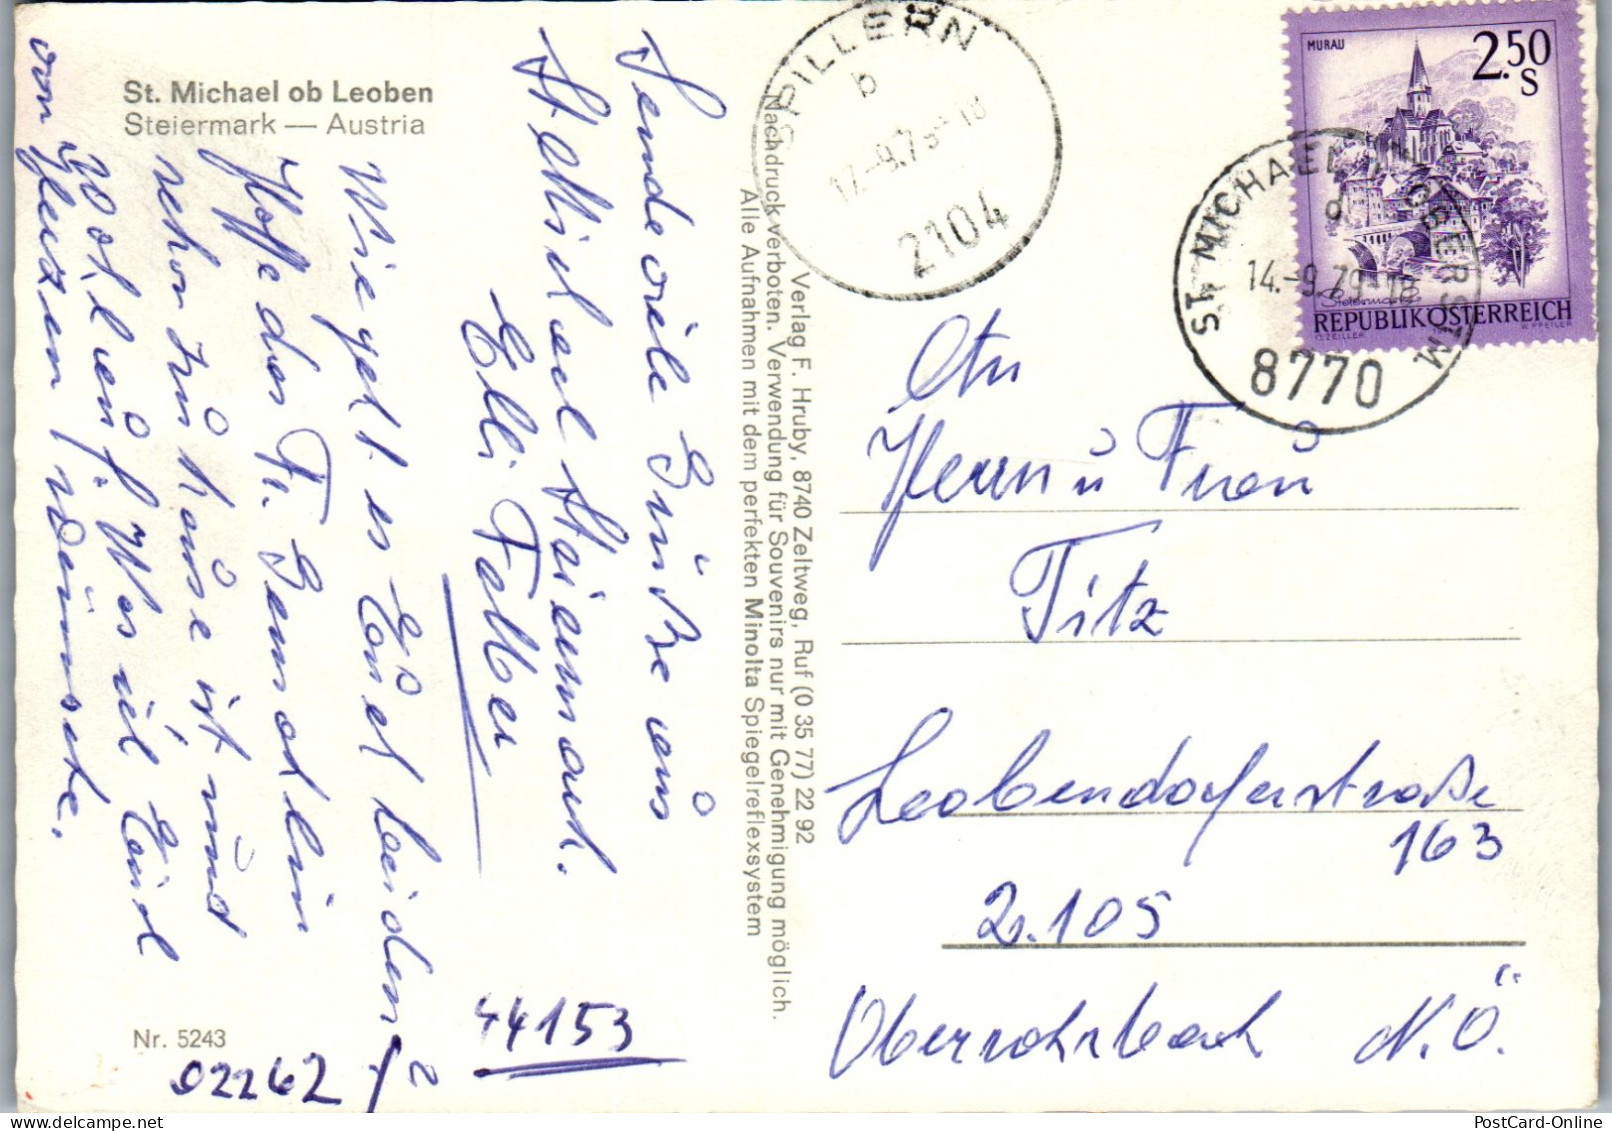 St. Michael ob Leoben
Steiermark — Austria
Sende viele Grüße aus
St. Michael Steiermark.
Elli Felber
Wie geht es Euch beiden?
Hoffe das Fr.
schon zu Hause ist und
wohlauf. Was ich Euch
von Herzen wünsche.
Nr. 5243
02262
44153
Verlag F. Hruby, 8740 Zeltweg, Ruf (0 35 77) 22 92
Nachdruck verboten. Verwendung für Souvenirs nur mit Genehmigung möglich.
Alle Aufnahmen mit dem perfekten Minolta Spiegelreflexsystem
SPILLERN
b
17.-9.79-18
2104
MURAU
2.50
S
Steiermark
REPUBLIK ÖSTERREICH
O. ZEILLER
W. PFEILER
ST. MICHAEL I. OBERSTM
d
14.-9.79-18
8770
An
Herrn u Frau
Titz
Leobendorferstraße
163
2.105
Oberrohrbach N.Ö.
PostCard-Online